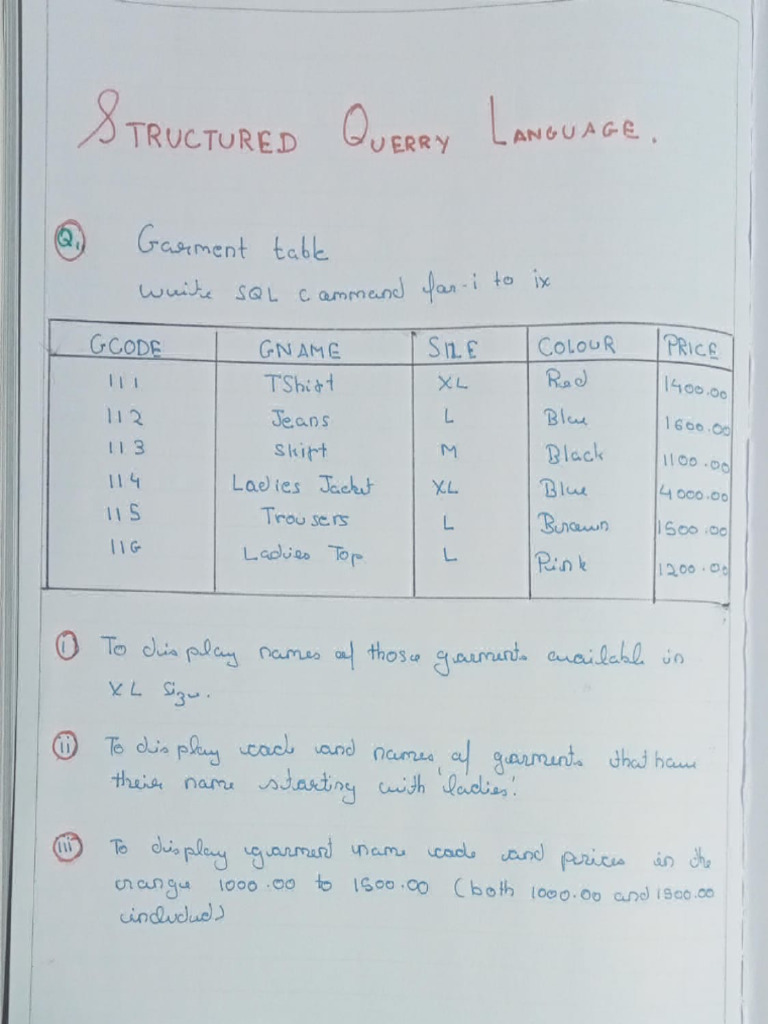 STRUCTURED QUERRY LANGUAGE.
Q1 Garment table
Write SQL command for i to ix
GCODE GNAME SIZE COLOUR PRICE
111 TShirt XL Red 1400.00
112 Jeans L Blue 1600.00
113 Skirt M Black 1100.00
114 Ladies Jacket XL Blue 4000.00
115 Trousers L Brown 1500.00
116 Ladies Top L Pink 1200.00
i) To display names of those garments available in
XL Size.
ii) To display code and names of garments that have
their name starting with 'ladies'.
iii) To display garment name code and prices in the
range 1000.00 to 1500.00 (both 1000.00 and 1500.00
included)